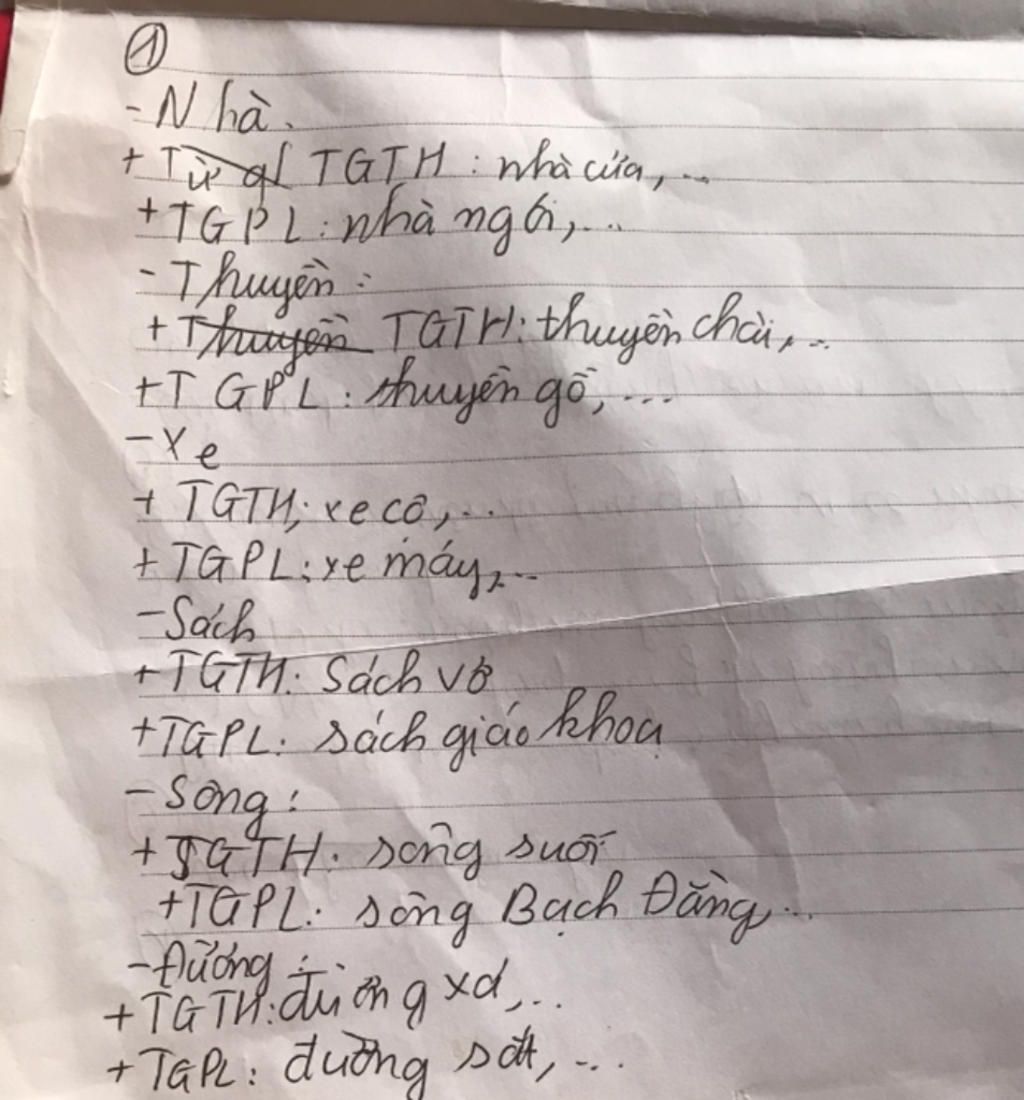 ①
- Nhà.
+ Từ gl TGTH: nhà cửa,...
+ TGPL: nhà ngói,...
- Thuyền:
+ Thuyền TGTH: thuyền chài,...
+ TGPL: thuyền gỗ,...
- Xe
+ TGTH: xe cộ,...
+ TGPL: xe máy,...
- Sách
+ TGTH: Sách vở
+ TGPL: sách giáo khoa
- Sông:
+ TGTH: sông suối
+ TGPL: sông Bạch Đằng,...
- Đường:
+ TGTH: đường xá,...
+ TGPL: đường sắt,...